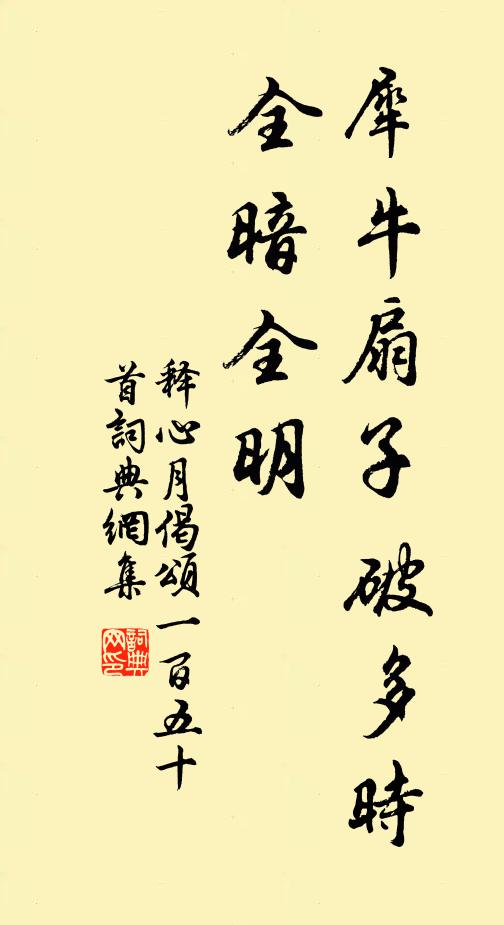 犀牛扇子破多時
全暗全明
释心月偈頌一百五十
首詞典網集
詞典网印